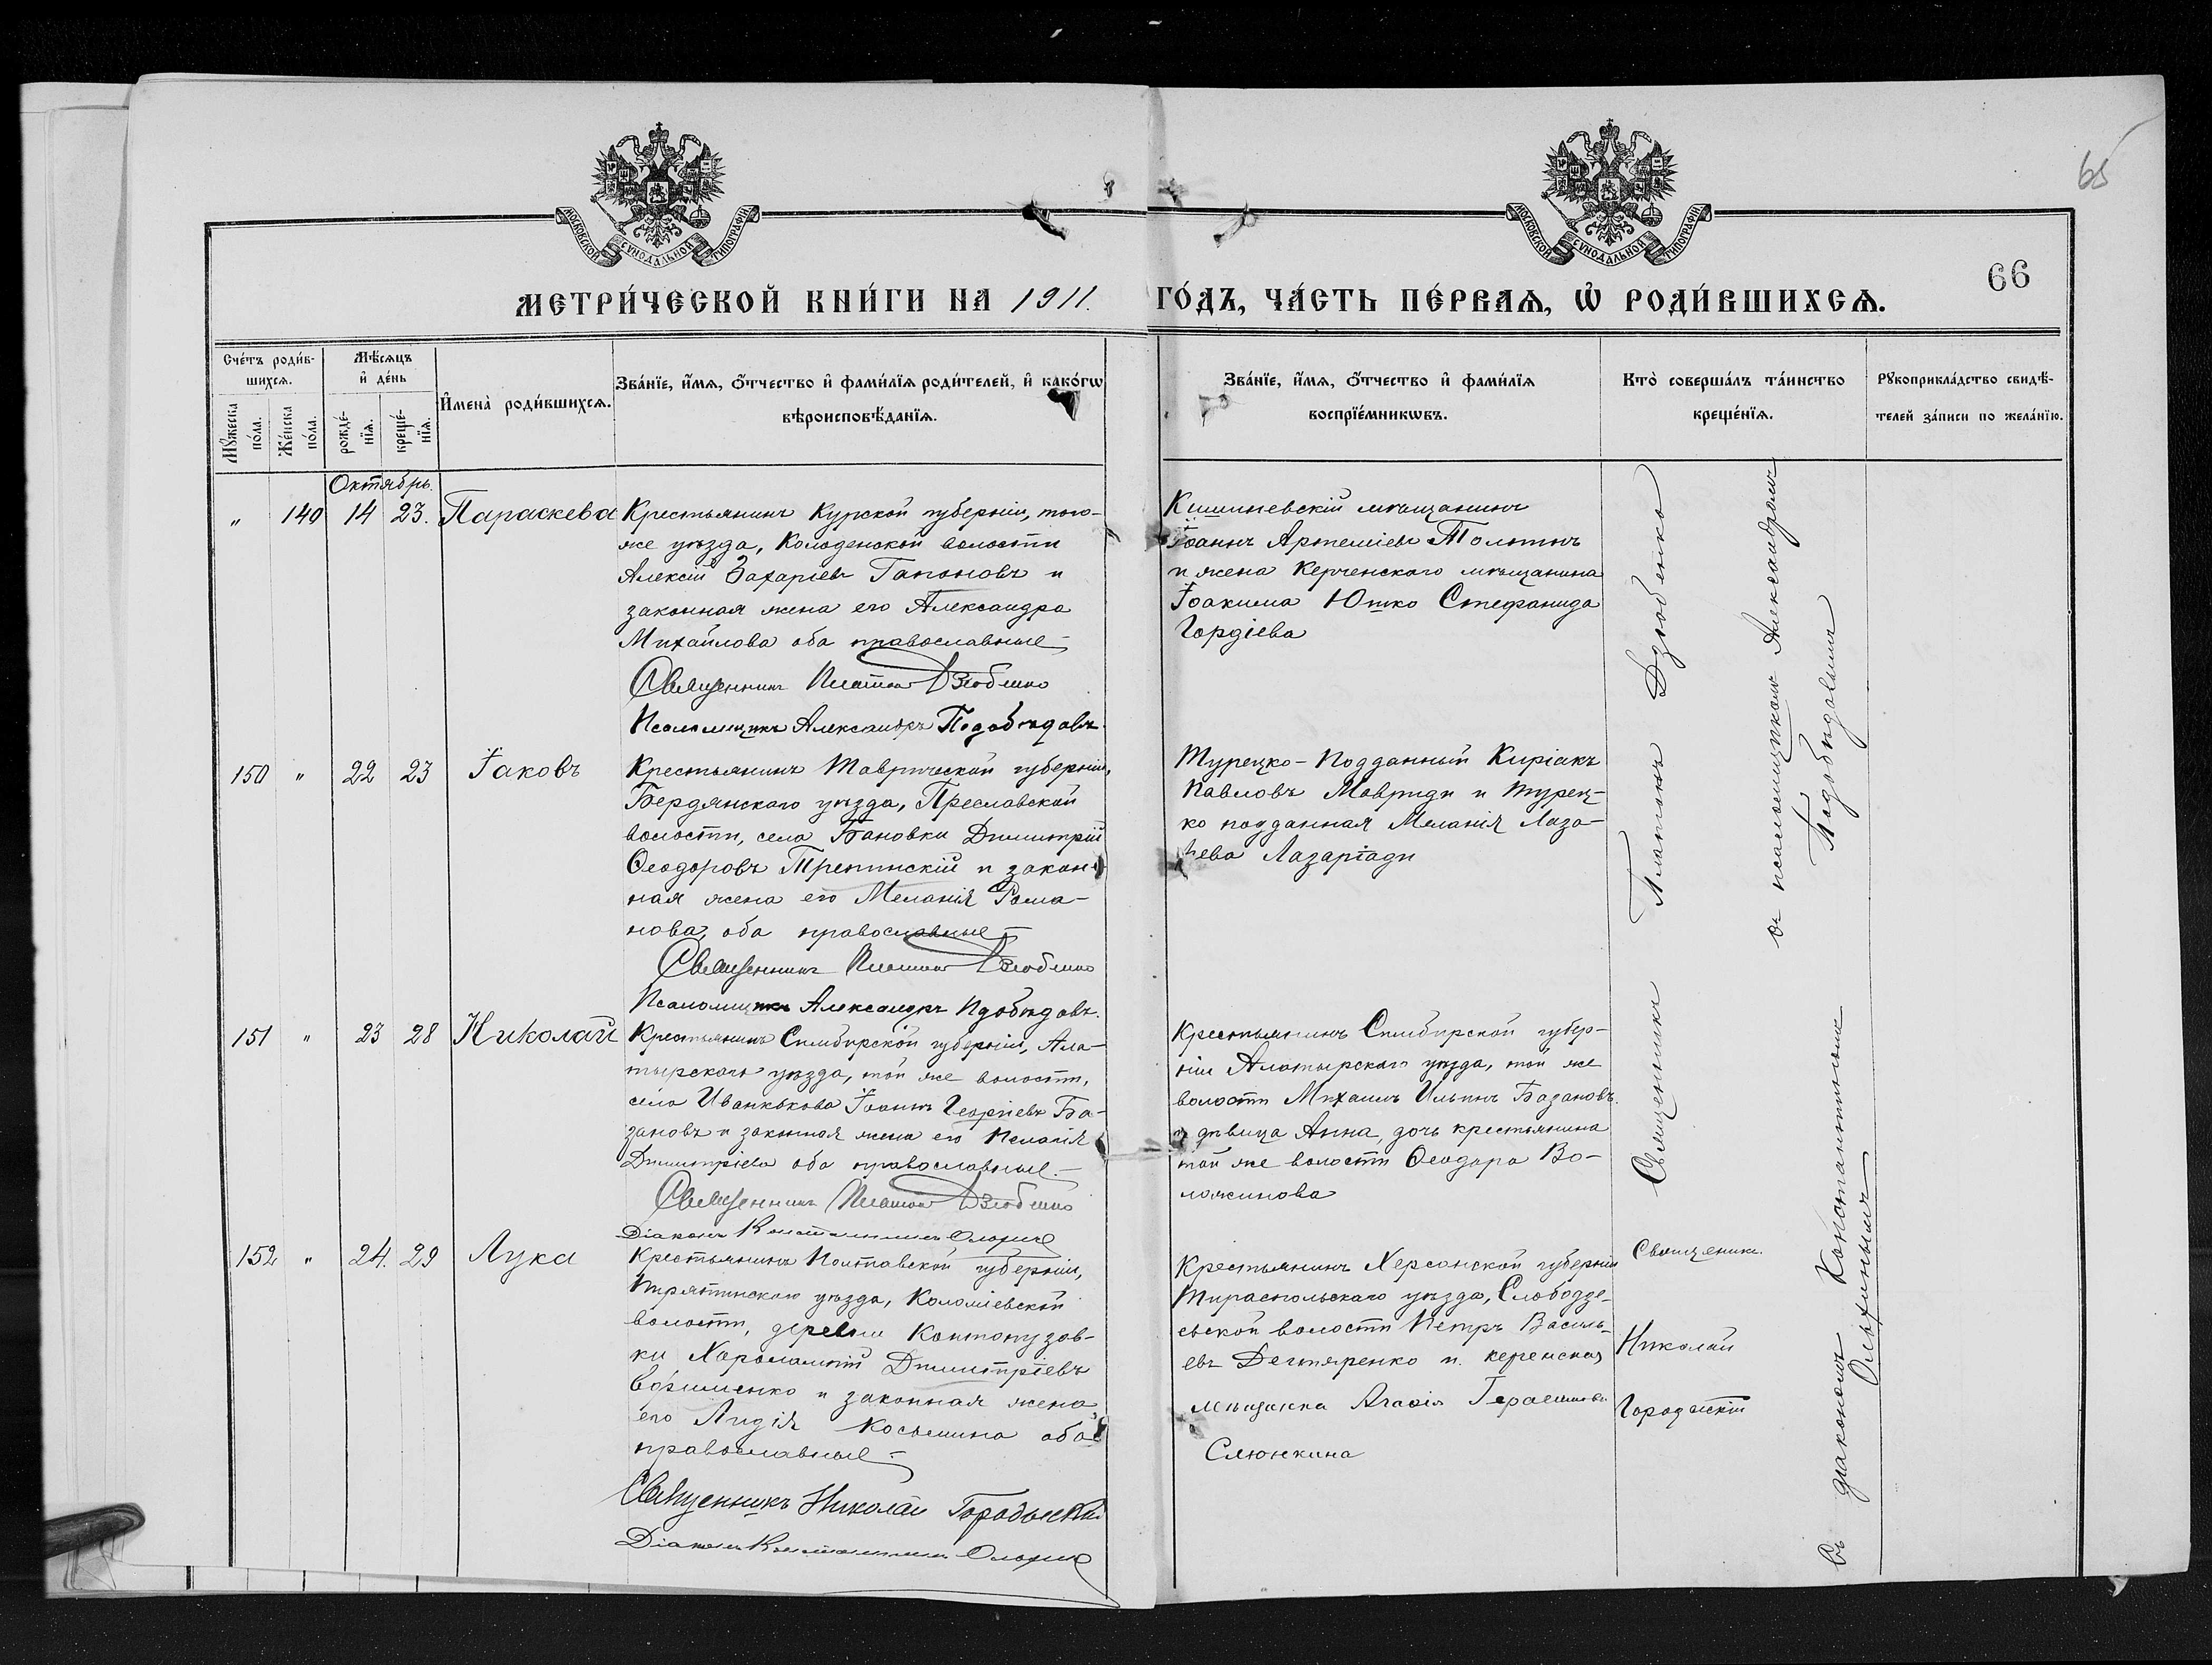 65
МОСКОВСКОЙ СѴНОДАЛЬНОЙ ТИПОГРАФІИ
МОСКОВСКОЙ СѴНОДАЛЬНОЙ ТИПОГРАФІИ
66
МЕТРИ́ЧЕСКОЙ КНИ́ГИ НА 1911. ГО́ДЪ, ЧА́СТЬ ПЕ́РВАѦ, Ѡ҆ РОДИ́ВШИХСѦ.
Сче́тъ роди́в-
шихсѧ.
Мꙋ́жеска по́ла.
Же́нска по́ла.
Мѣ́сѧцъ
и҆ де́нь
рожде́-
нїѧ.
креще́-
нїѧ.
И҆мена̀ роди́вшихсѧ.
Зва́нїе, и҆́мѧ, ѻ҆́тчество и҆ фами́лїѧ роди́телей, и҆ како́гѡ
вѣроисповѣ́данїѧ.
Зва́нїе, и҆́мѧ, ѻ҆́тчество и҆ фами́лїѧ
воспрїе́мникѡвъ.
Кто̀ соверша́лъ та́инство
креще́нїѧ.
Рꙋкоприкла́дство свидѣ́-
телей за́писи по жела́нїю.
Октябрь.
" 149 14 23. Параскева
Крестьянинъ Курской губерніи, того-
же уѣзда, Колоденской волости
Алексій Захаріевъ Гапоновъ и
законная жена его Александра
Михайлова оба православные
Священникъ Платонъ Дзюбенко
Псаломщикъ Александръ Подобѣдовъ.
Кишиневскій мѣщанинъ
Іоаннъ Артеміевъ
и жена Керченскаго мѣщанина
Іоакима Юшко Стефанида
Гордіева
150 " 22 23 Іаковъ
Крестьянинъ Таврической губерніи,
Бердянскаго уѣзда, Преславской
волости, села Бановки Димитрій
Ѳеодоровъ и закон-
ная жена его Меланія Рома-
нова, оба православные
Священникъ Платонъ Дзюбенко
Псаломщикъ Александръ Пдобѣдовъ.
Турецко-Подданный Киріакъ
Павловъ Мавриди и турец-
ко подданная Меланія Лаза-
рева Лазаріади
151 " 23 28 Николай
Крестьянинъ Симбирской губерніи, Ала-
тырскаго уѣзда, той же волости,
села Иванькова Іоаннъ Георгіевъ Ба-
зановъ и законная жена его Пелагія
Димитріева оба православные.
Священникъ Платонъ Дзюбенко
Діаконъ Константинъ Ольхинъ
Крестьянинъ Симбирской губер-
ніи Алатырскаго уѣзда, той же
волости Михаилъ Ильинъ Базановъ.
и дѣвица Анна, дочь крестьянина
той же волости Ѳеодора Во-
ложинова
152 " 24. 29 Лука
Крестьянинъ Полтавской губерніи,
Пирятинскаго уѣзда, Коломіевской
волости, деревни
ки Харалампій Димитріевъ
и законная жена
его Лидія Косьмина оба
православные.
Священникъ Николай Городыскій
Діаконъ Константинъ Ольхинъ
Крестьянинъ Херсонской губерніи
Тираспольскаго уѣзда, Слободзе-
ьской волости Петръ Василь-
евъ Дегтяренко и керченская
мѣщанка Агаѳія Герасимова
Слюнкина
Священникъ Платонъ Дзюбенко
съ псаломщикомъ Александромъ
Подобѣдовымъ
съ діакономъ Константиномъ
Ольхинымъ
Священникъ
Николай
Городыскій